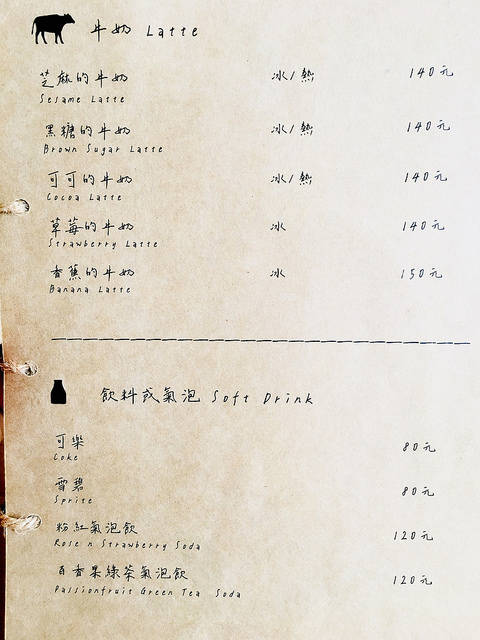 牛奶 Latte
芝麻的牛奶 冰/熱 140元
Sesame Latte
黑糖的牛奶 冰/熱 140元
Brown Sugar Latte
可可的牛奶 冰/熱 140元
Cocoa Latte
草莓的牛奶 冰 140元
Strawberry Latte
香蕉的牛奶 冰 150元
Banana Latte
飲料或氣泡 Soft Drink
可樂 80元
Coke
雪碧 80元
Sprite
粉紅氣泡飲 120元
Rose n Strawberry Soda
百香果綠茶氣泡飲 120元
Passionfruit Green Tea Soda